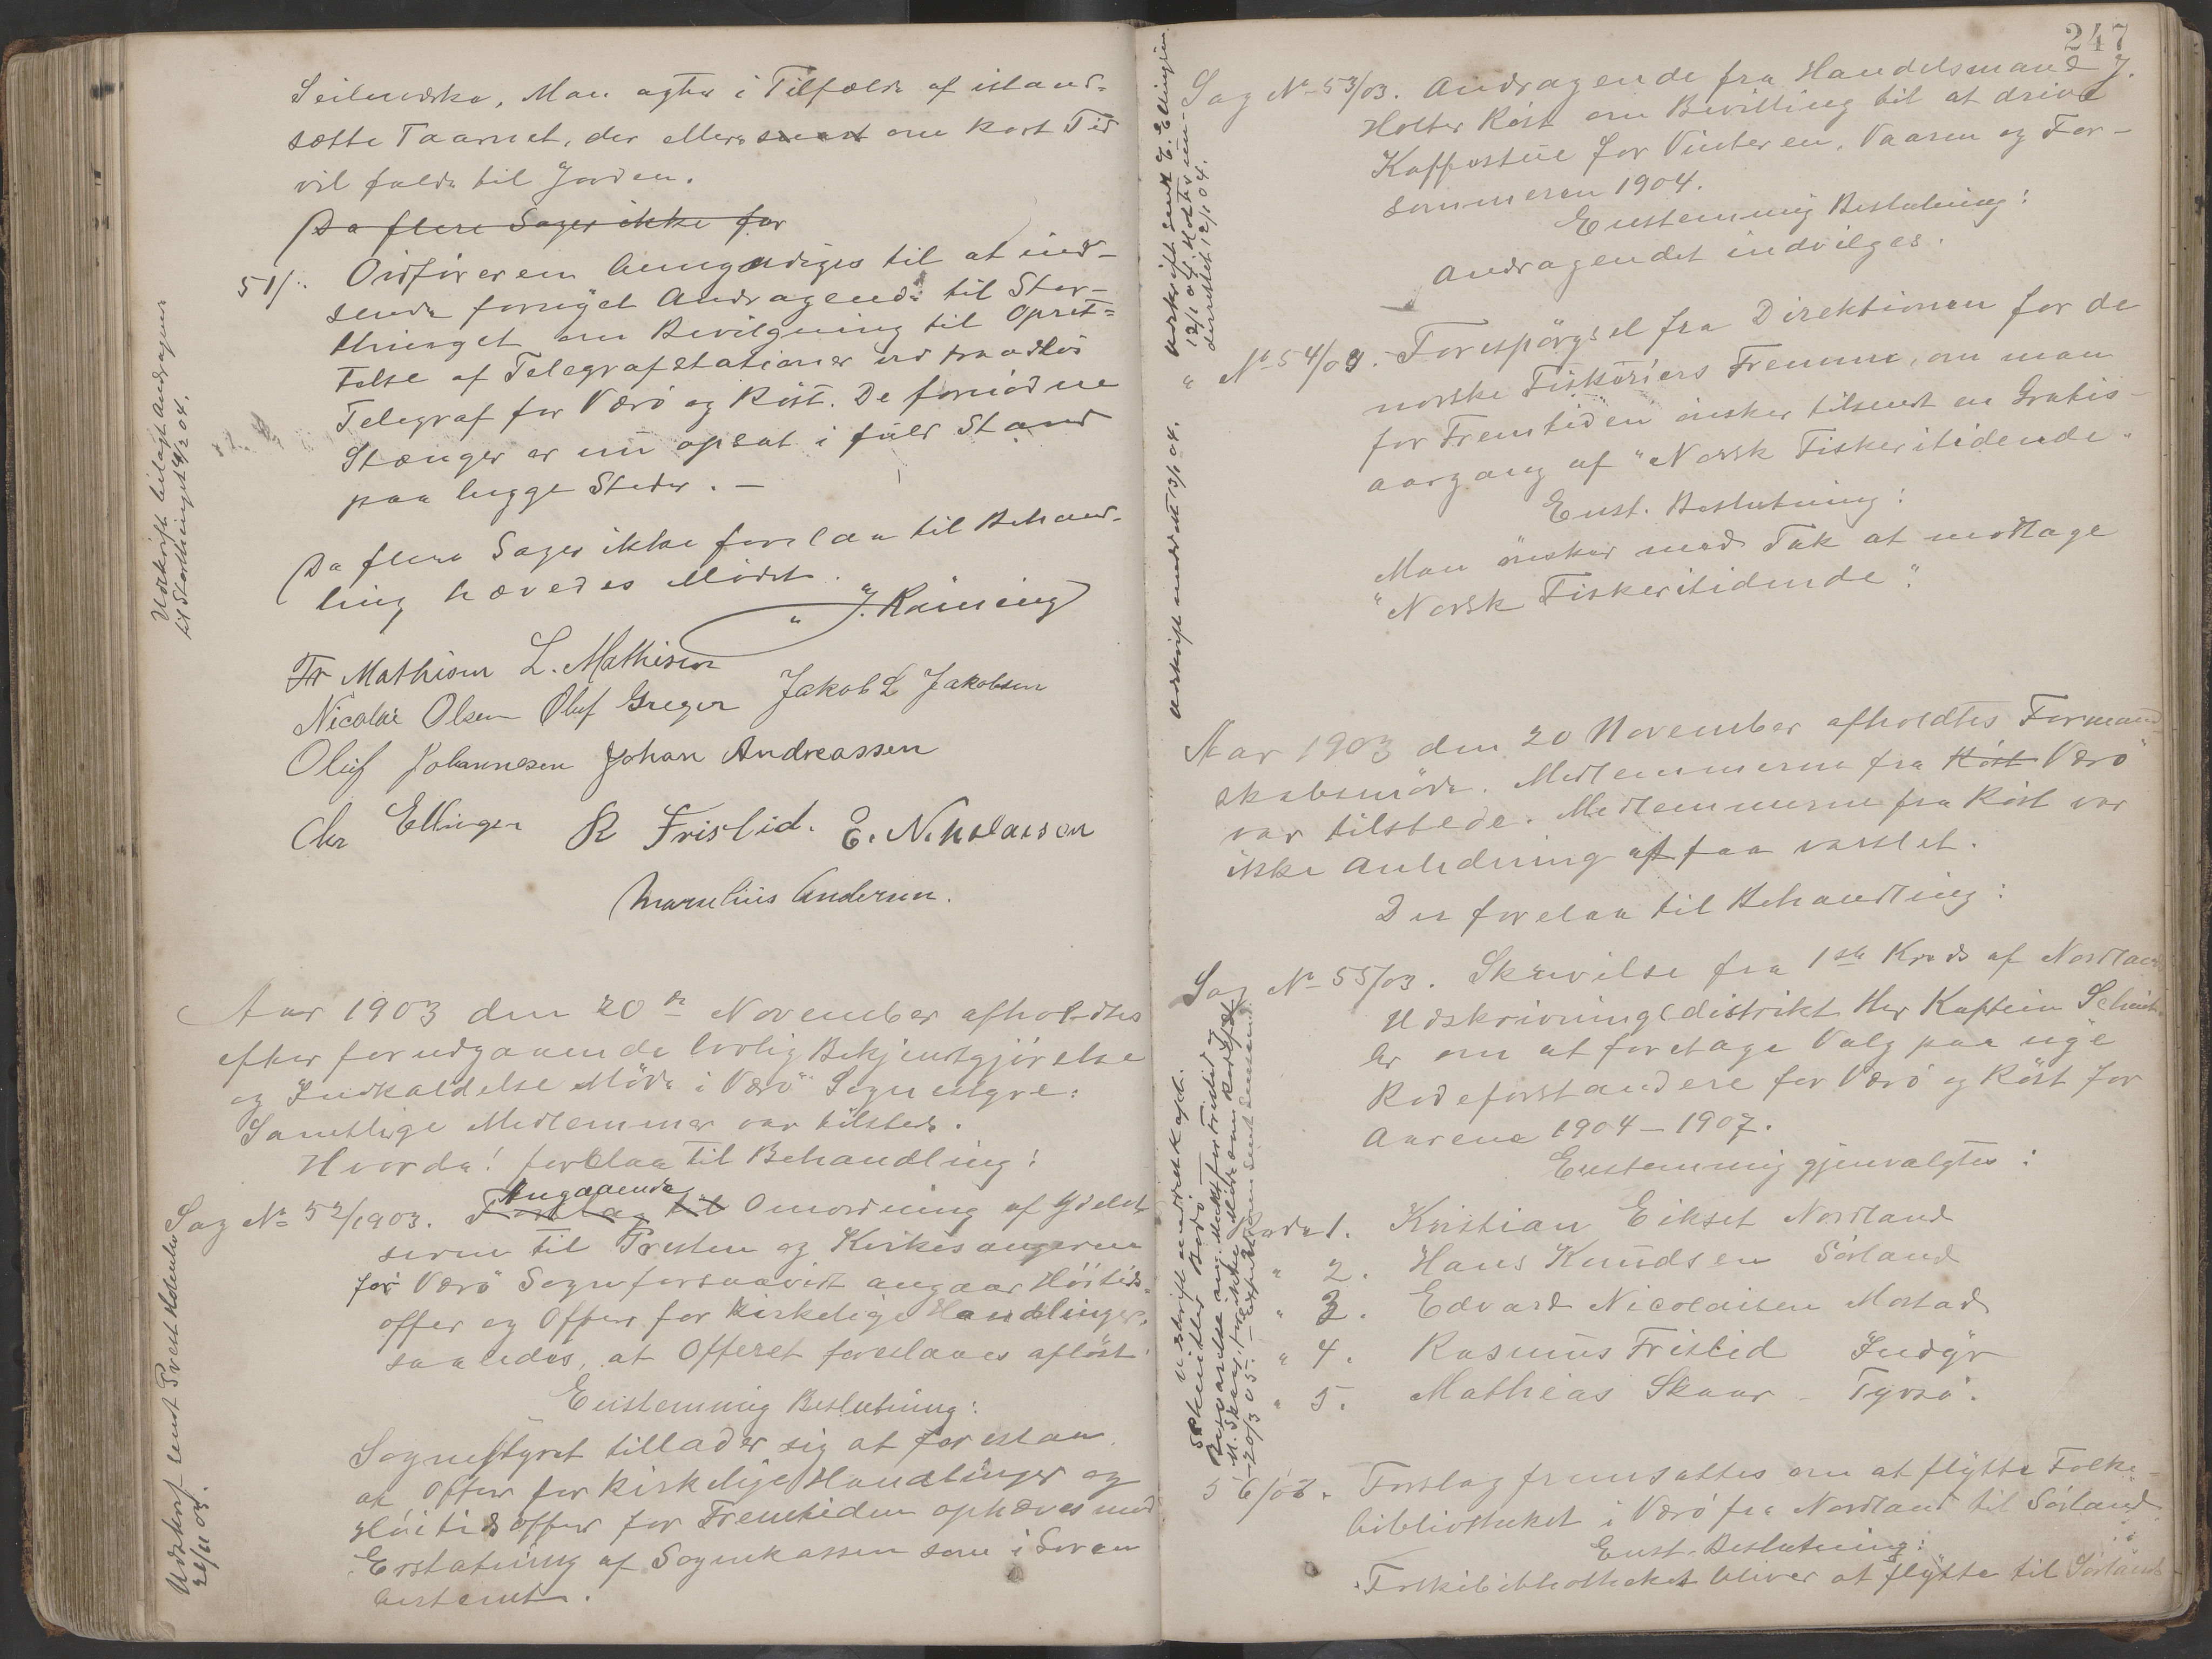 Seilmærke. Man agter i Tilfælde af istand-
sætte Taarnet, der ellers snart om kort Tid
vil falde til Jorden.
Da flere Sager ikke for
51/. Ordföreren bemyndiges til at ind-
sende fornyet Andragende til Stor-
thinget om Bevilgning til Opret-
telse af Telegrafstationer ved traadlös
Telegraf for Værö og Röst. De fornödne
Stænger er nu opsat i fuld Stand
paa begge Steder. —
Udskrift bilagt Andragende
til Storthinget 4/2 04.
Da flere Sager ikke forelaa til Behand-
ling hævedes Mödet.
J. Räining
Fr Mathisen L. Mathisen
Nicolai Olsen Oluf Greger Jakob L Jakobsen
Oluf Johannesen Johan Andreassen
Chr Ellingsen R Fristid. E. Nikolaisen
Marselius Andersen.
Aar 1903 den 20de November afholdtes
efter forudgaaende lovlig Bekjendtgjörelse
og Indkaldelse Möde i Værö Sognestyre.
Samtlige Medlemmer var tilstede.
Hvorda! forelaa til Behandling:
Angaaende
Sag No 52/1903. Forslag til Omordning af Ydel
serne til Presten og Kirkesangeren
for Værö Sogn forsaavidt angaar Höitids-
offer og Offer for kirkelige Handlinger,
saaledes, at Offeret foreslaaes aflöst.
Enstemmig Beslutning:
Sognestyret tillader sig at foreslaa
at Offer for kirkelige Handlinger og
Höitidsoffer for Fremtiden ophæves mod
Erstatning af Sognekassen som i Loven
bestemt.
Udskrift sendt Provst
26/11 03.
247
Sag No 53/03. Andragende fra Handelsmand J.
Holter Röst om Bevilling til at drive
Kaffestue for Vinteren, Vaaren og For-
sommeren 1904.
Enstemmig Beslutning:
Andragendet indvilges.
Udskrift sendt E. Ellingsen
12/1 04. Holter un-
derrettet 12/1 04.
" No 54/03. Forespörgsel fra Direktionen for de
norske Fiskeriers Fremme, om man
for Fremtiden önsker tilsendt en Gratis-
aargang af "Norsk Fiskeritidende"
Enst. Beslutning:
Man önsker med Tak at modtage
"Norsk Fiskeritidende".
Udskrift meddelt 13/1 04.
Aar 1903 den 20 November afholdtes Formand
skabsmöde. Medlemmerne fra Röst Værö
var tilstede. Medlemmerne fra Röst var
ikke Anledning at faa varslet.
Der forelaa til Behandling:
Sag No 55/03. Skrivelse fra 1ste Kreds af Nordland
Udskrivningsdistrikt Her Kaptein Schnit
ler om at foretage Valg paa nye
Rodeforstandere for Værö og Röst for
Aarene 1904 – 1907.
Enstemmig gjenvalgtes:
Rode 1. Kristian Eikset Nordland
" 2. Hans Knudsen Sörland
" 3. Edvard Nicolaisen Mostad
" 4. Rasmus Fristid Indyr
" 5. Mathias Skaar – Tyvsö.
Udskrift meddelt Kapt.
Schnitler Bodö
56/03. Forslag fremsattes om at flytte Folke-
bibliotheket i Værö fra Nordland til Sörland.
Enst. Beslutning:
Folkebibliotheket bliver at flytte til Sörland